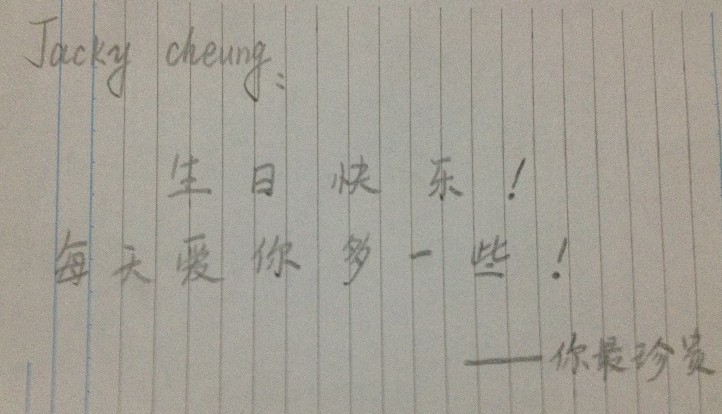 Jacky cheung:
生日快乐!
每天爱你多一些!
——你最珍贵